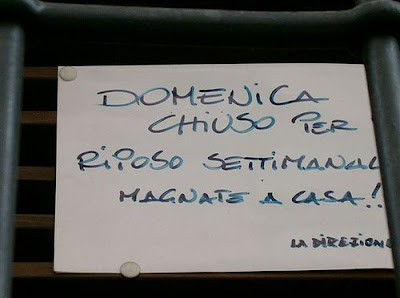 DOMENICA
CHIUSO PER
RIPOSO SETTIMANAL
MAGNATE A CASA!!
LA DIREZIONE